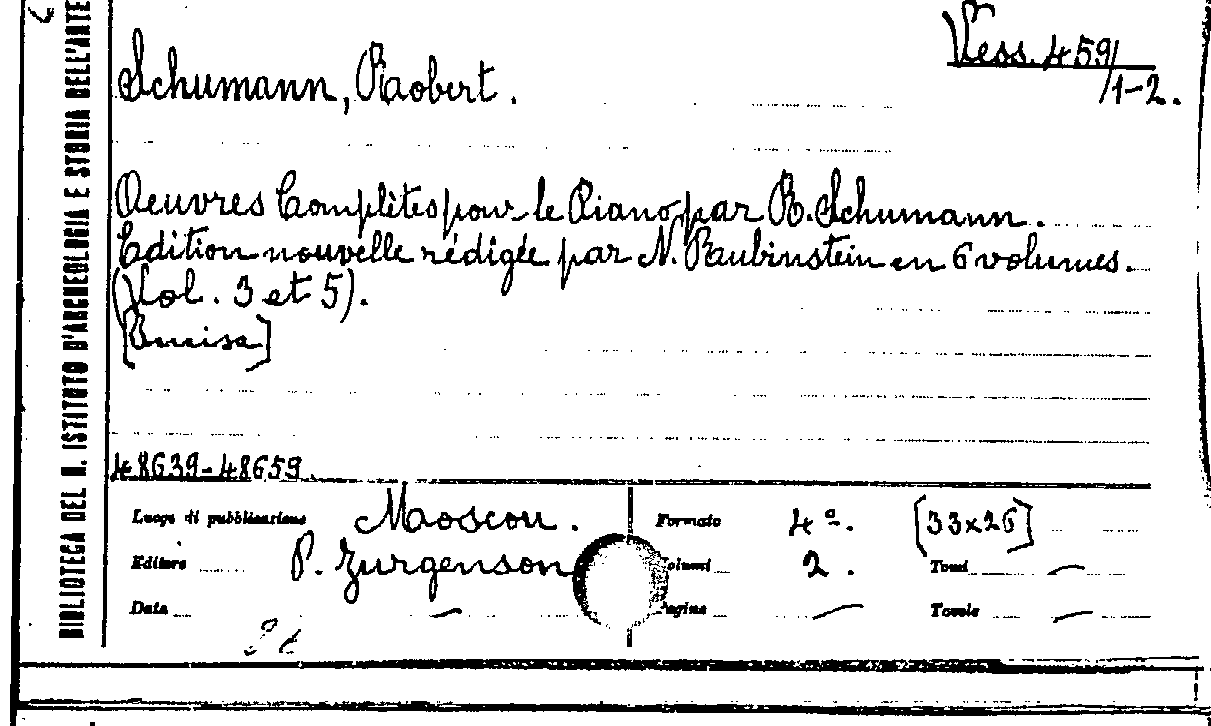 BIBLIOTECA DEL R. ISTITUTO D'ARCHEOLOGIA E STORIA DELL'ARTE
Vess. 459/
/1-2.
Schumann, Robert.
Oeuvres Complètes pour le Piano par R. Schumann.
Edition nouvelle rédigée par N. Rubinstein en 6 volumes.
(Vol. 3 et 5).
[Incisa]
48639-48659.
Luogo di pubblicazione Moscou. Formato 4º. [33x26]
Editore P. Jurgenson Volumi 2. Tomi —
Data — Pagine — Tavole —